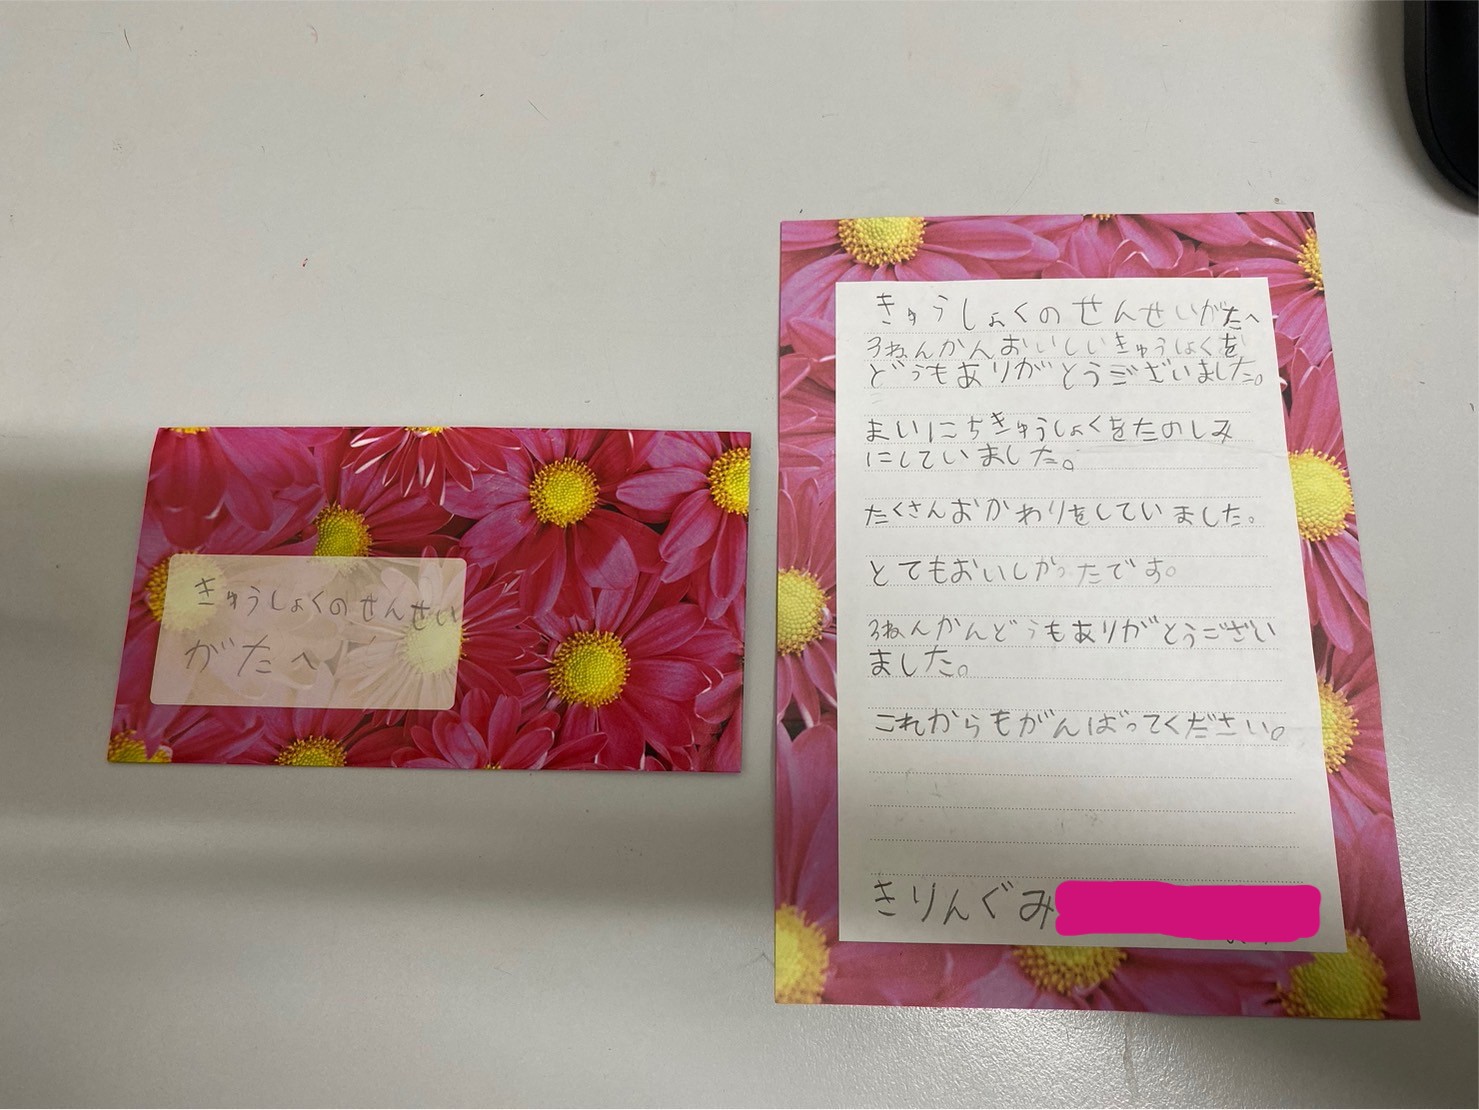 きゅうしょくのせんせい
がたへ
きゅうしょくのせんせいがたへ
3ねんかんおいしいきゅうしょくを
どうもありがとうございました。
まいにちきゅうしょくをたのしみ
にしていました。
たくさんおかわりをしていました。
とてもおいしかったです。
3ねんかんどうもありがとうござい
ました。
これからもがんばってください。
きりんぐみ